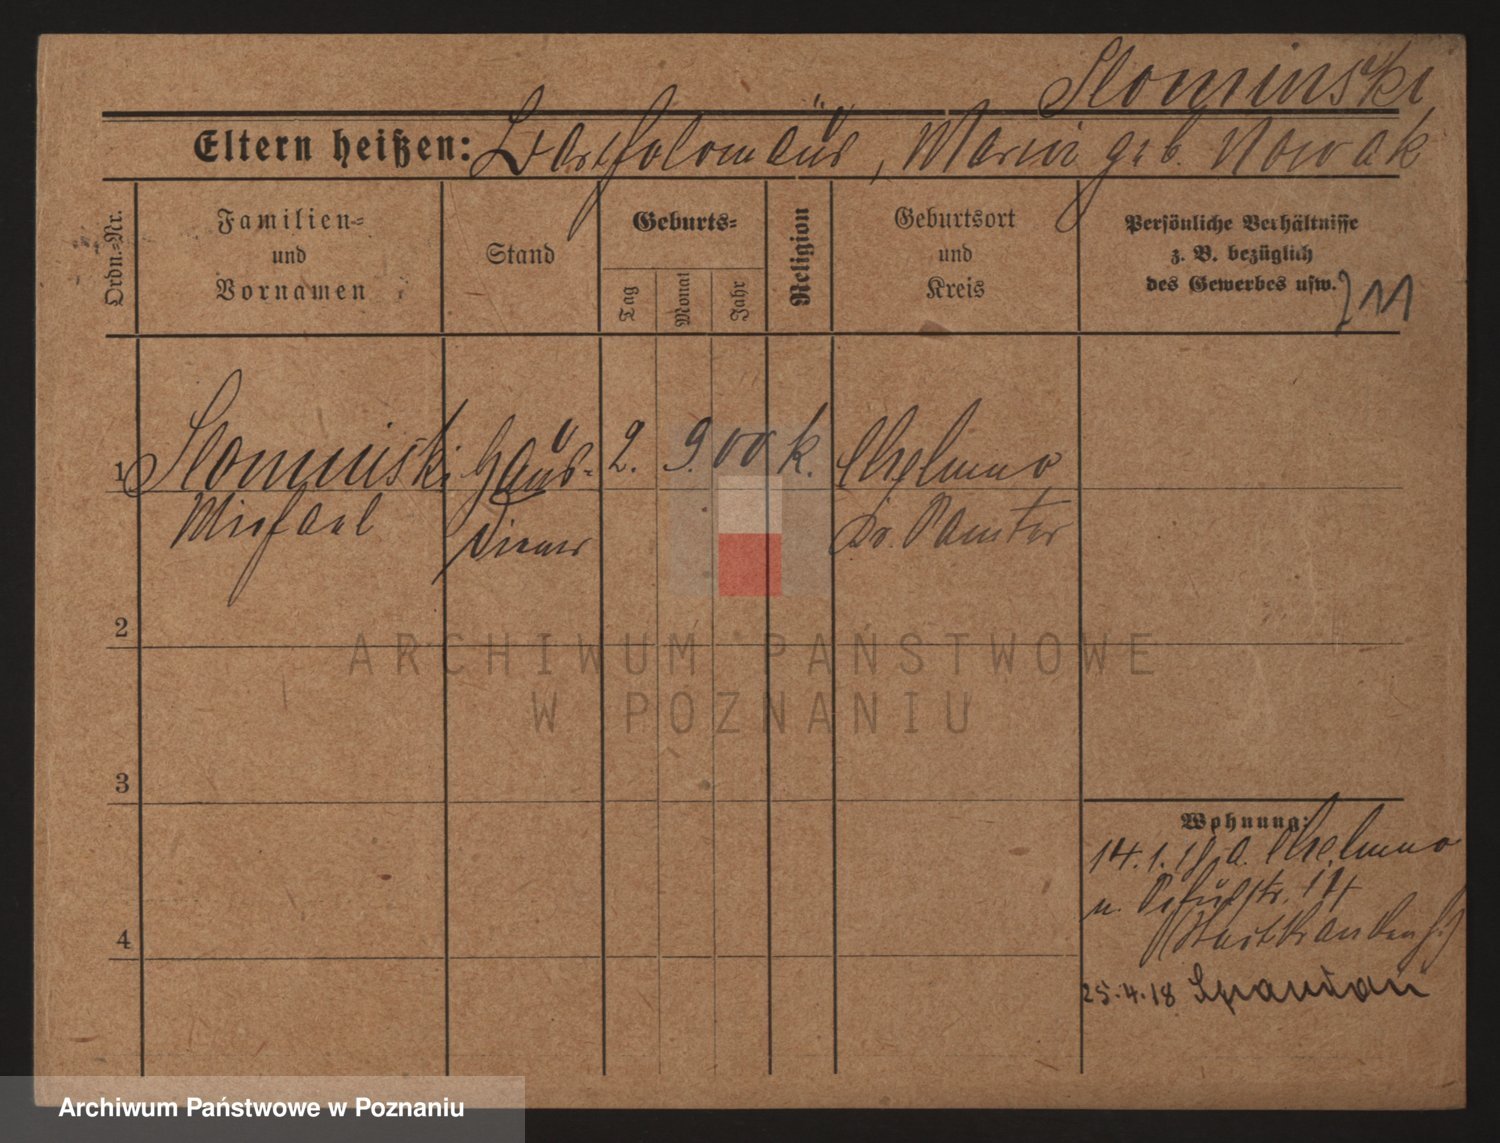 Slominski
Eltern heißen: Bartholomäus, Marie geb. Nowak
Ordn.=Nr.
Familien=
und
Vornamen
Stand
Geburts=
Tag
Monat
Jahr
Religion
Geburtsort
und
Kreis
Persönliche Verhältnisse
z. B. bezüglich
des Gewerbes usw.
711
1 Slominski Haus= 2. 9. 00 k. Chelmno
Michael diener Kr. Samter
2
3
4
Wohnung:
14.1.18 a. Chelmno
n. Schulstr. 14
(Stadtkrankenh.)
25.4.18 Spandau
ARCHIWUM PAŃSTWOWE
W POZNANIU
Archiwum Państwowe w Poznaniu